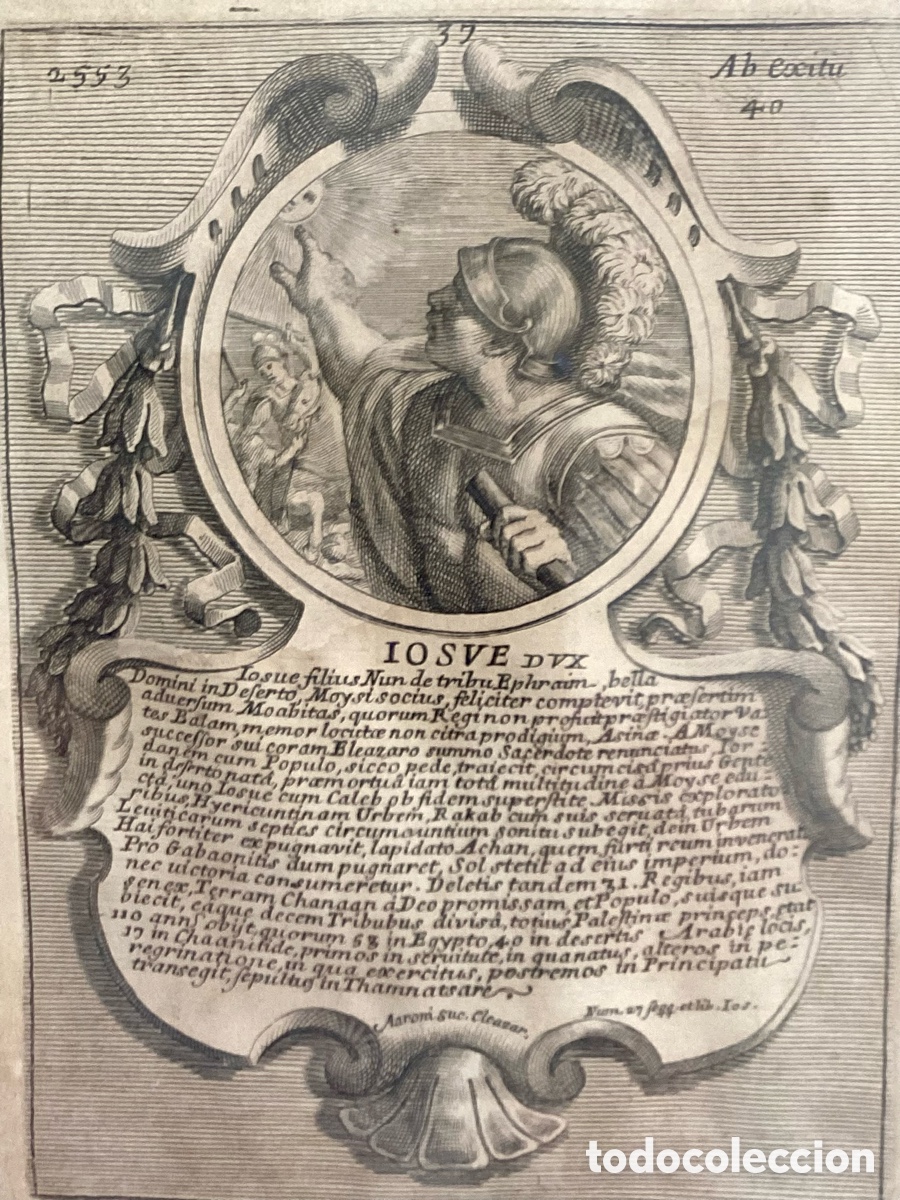 37
2553
Ab Exitu
40
IOSVE DVX
Iosue filius Nun de tribu Ephraim, bella
Domini in Deserto, Moysi socius, feliciter complevit, præsertim
adversum Moabitas, quorum Regi non proficit præstigiator Va-
tes Balam, memor locutæ non citra prodigium, Asinæ. A Moyse
successor sui coram Eleazaro summo Sacerdote renunciatus, Ior-
danem cum Populo, sicco pede, traiecit, circumcisa prius Gente
in deserto natá, præmortuá iam totá multitudine à Moyse edu-
ctá, uno Iosue cum Caleb ob fidem superstite. Missis explorato-
ribus, Hyericuntinam Urbem, Rakab cum suis seruatá, tubarum
Leuiticarum septies circumeuntium sonitu subegit, dein Urbem
Hai fortiter expugnavit, lapidato Achan, quem furti reum invenerat.
Pro Gabaonitis dum pugnaret, Sol stetit ad eius imperium, do-
nec uictoria consumeretur. Deletis tandem 31. Regibus, iam
senex, Terram Chanaan à Deo promissam, et Populo, suisque su-
biecit, eáque decem Tribubus divisá, totius Palestinæ princeps, ætat
110 anns obijt, quorum 53 in Egypto, 40 in desertis Arabiæ locis,
17 in Chaanitide, primos in seruitute, in qua natus, alteros in pe-
regrinatione, in qua exercitus, postremos in Principatu
transegit, sepultus in Thamnatsare
Aaroni suc. Eleazar.
Num. 27 seqq. et lib. Ios.
todocoleccion